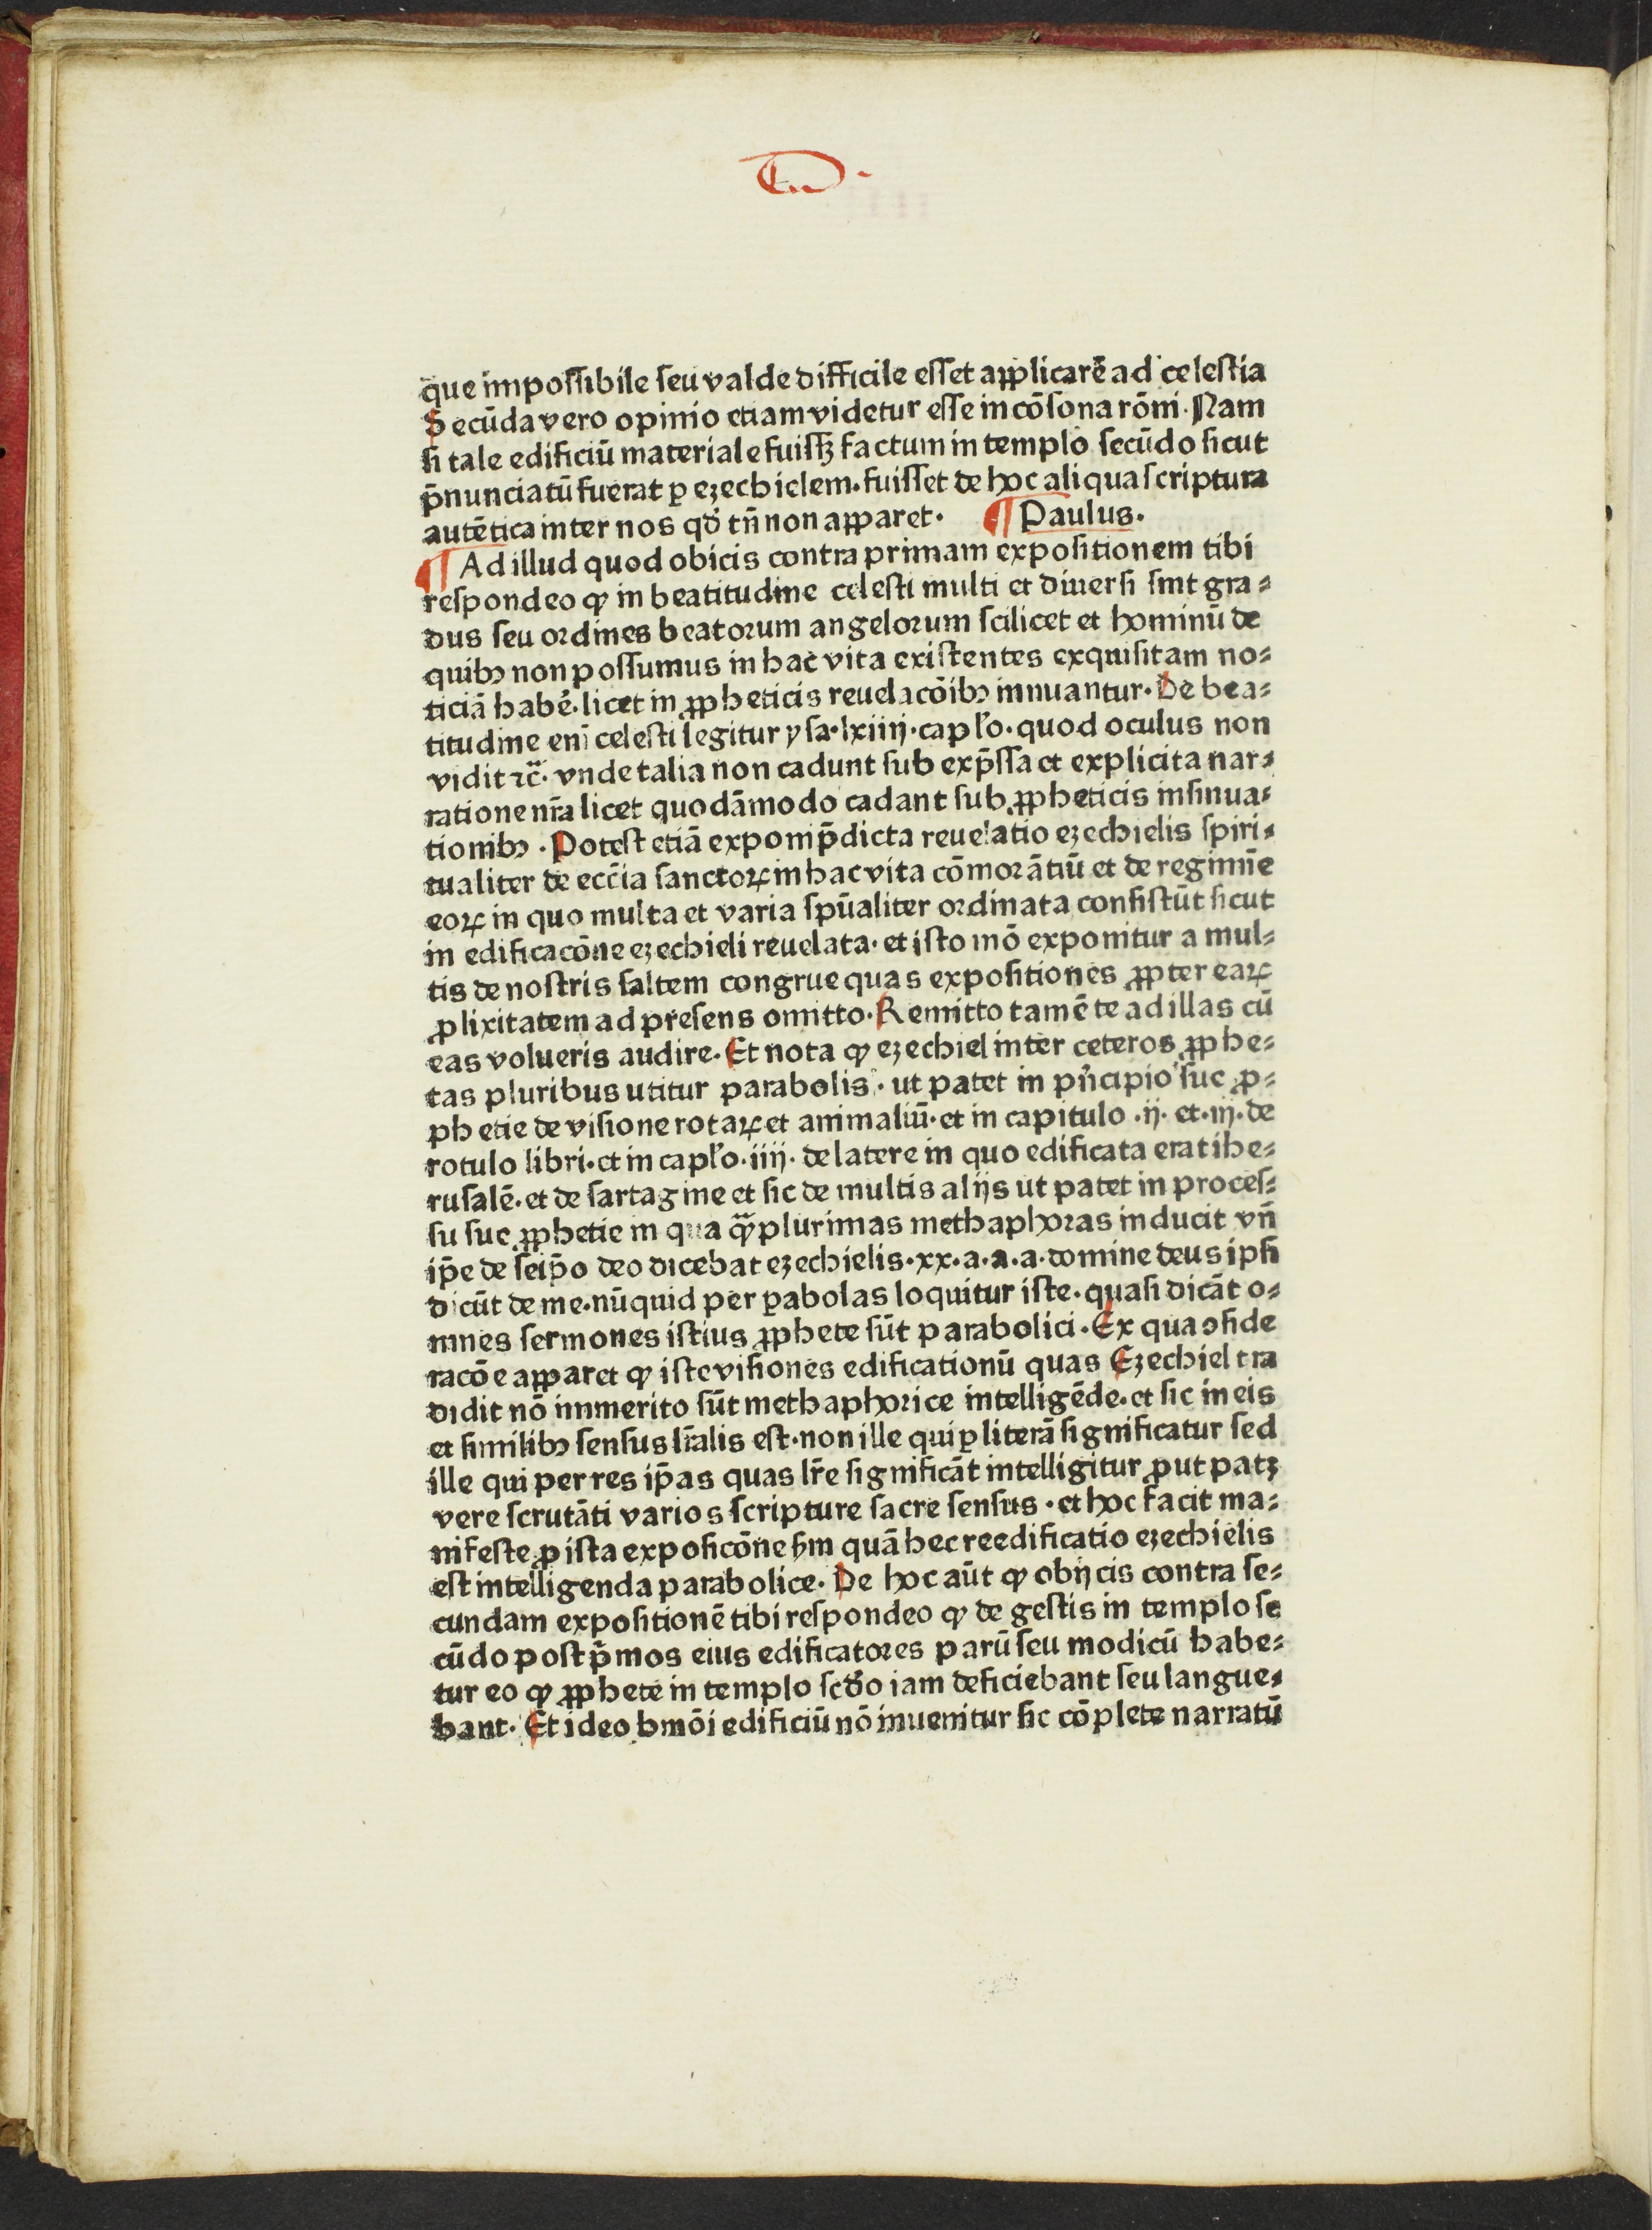 que impossibile seu valde difficile esset applicarē ad celestia
Secūda vero opinio etiam videtur esse incōsona rōni. Nam
si tale edificiū materiale fuissꝫ factum in templo secūdo sicut
p̄nunciatū fuerat ꝑ ezechielem. fuisset de hoc aliqua scriptura
autētica inter nos qd̛ tn̄ non apparet. ¶ Paulus.
¶ Ad illud quod obicis contra primam expositionem tibi
respondeo ꝙ in beatitudine celesti multi et diuersi sint gra⸗
dus seu ordines beatorum angelorum scilicet et hominū de
quibꝯ non possumus in hac vita existentes exquisitam no⸗
ticiā habe᷑. licet in ꝓpheticis reuelacōibꝯ innuantur. De bea⸗
titudine eni᷑ celesti legitur ysa. lxiiij. capl̛o. quod oculus non
vidit ⁊c̄. vnde talia non cadunt sub exp̄ssa et explicita nar⸗
ratione nr̄a licet quodāmodo cadant sub ꝓpheticis insinua⸗
tionibꝯ. Potest etiā exponi p̄dicta reuelatio ezechielis spiri⸗
tualiter de ecc̄ia sanctoꝝ in hac vita cōmorātiū et de regimīe
eoꝝ in quo multa et varia spūaliter ordinata consistūt sicut
in edificacōne ezechieli reuelata. et isto mō exponitur a mul⸗
tis de nostris saltem congrue quas expositiones ꝓpter eaꝝ
ꝓlixitatem ad presens omitto. Remitto tamē te ad illas cū
eas volueris audire. Et nota ꝙ ezechiel inter ceteros ꝓphe⸗
tas pluribus utitur parabolis. ut patet in pn̛cipio sue ꝓ⸗
phetie de visione rotaꝝ et animaliū. et in capitulo .ij. et. iij. de
rotulo libri. et in capl̛o. iiij. de latere in quo edificata erat ihe⸗
rusalē. et de sartagine et sic de multis alijs ut patet in proces⸗
su sue ꝓphetie in qua ꝙ̄plurimas methaphoras inducit vn̄
ip̄e de seip̄o deo dicebat ezechielis. xx. a. a. a. domine deus ipsi
dicūt de me. nūquid per ꝑabolas loquitur iste. quasi dicāt o⸗
mnes sermones istius ꝓphete sūt parabolici. Ex qua ꝯside
racōe apparet ꝙ iste visiones edificationū quas Ezechiel tra
didit nō immerito sūt methaphorice intelligēde. et sic in eis
et similibꝯ sensus lr̄alis est. non ille qui ꝑ literā significatur sed
ille qui per res ip̄as quas lr̄e significāt intelligitur ꝓut patꝫ
vere scrutāti varios scripture sacre sensus. et hoc facit ma⸗
nifeste ꝓ ista exposicōne ẜm quā hec reedificatio ezechielis
est intelligenda parabolice. De hoc aūt ꝙ obijcis contra se⸗
cundam expositionē tibi respondeo ꝙ de gestis in templo se
cūdo post p̄mos eius edificatores parū seu modicū habe⸗
tur eo ꝙ ꝓphete in templo scd̛o iam deficiebant seu langue⸗
bant. Et ideo hmōi edificiū nō inuenitur sic cōplete narratū